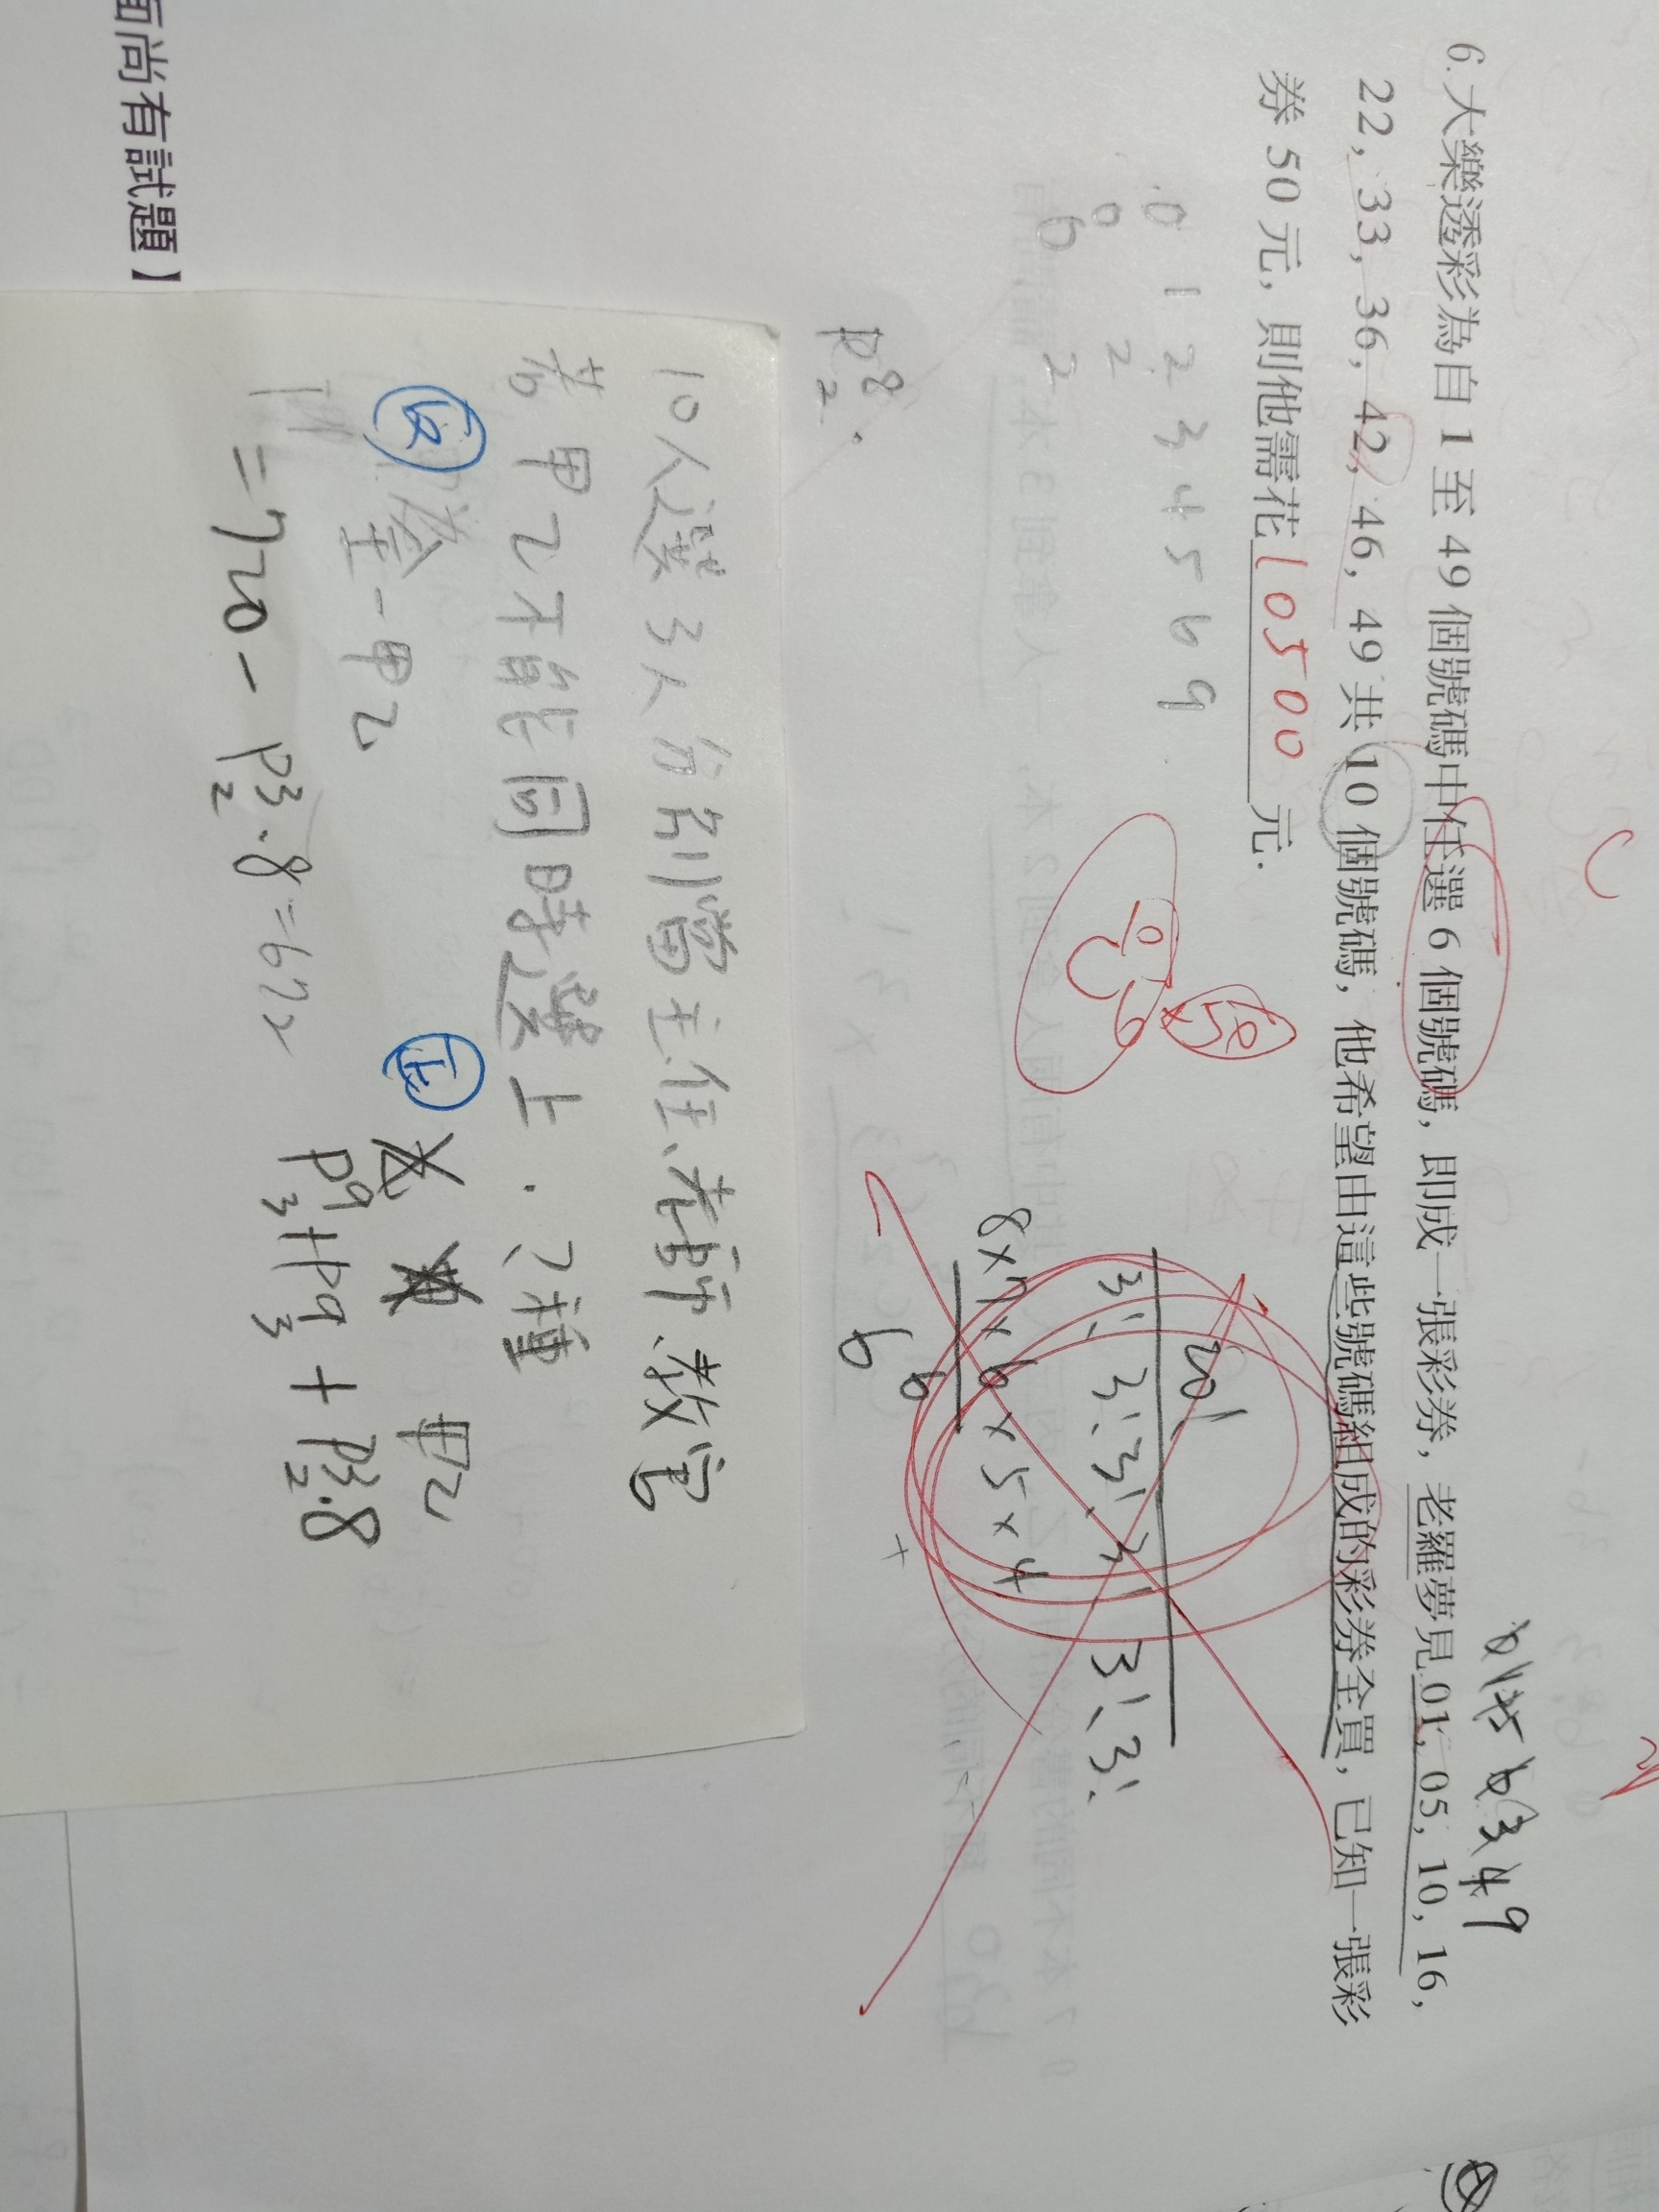 6.大樂透彩為自 1 至 49 個號碼中任選 6 個號碼，即成一張彩券，老羅夢見 01, 05, 10, 16,
22, 33, 36, 42, 46, 49 共 10 個號碼，他希望由這些號碼組成的彩券全買，已知一張彩
券 50 元，則他需花 10500 元.
0 1 2 3 4 5 6 9
0 2
6 2
C 10 6 × 50
20!
3! 3! 3! 3! 3! 3!
8×7×6×5×4
6
6
P 8 2 .
10人選3人分別當主任、老師、教官
若甲乙不能同時選上．?種
反 全－甲乙
= 720 - P 3 2 · 8 = 672
正
P 9 3 + P 9 3 + P 3 2 · 8
面尚有試題】